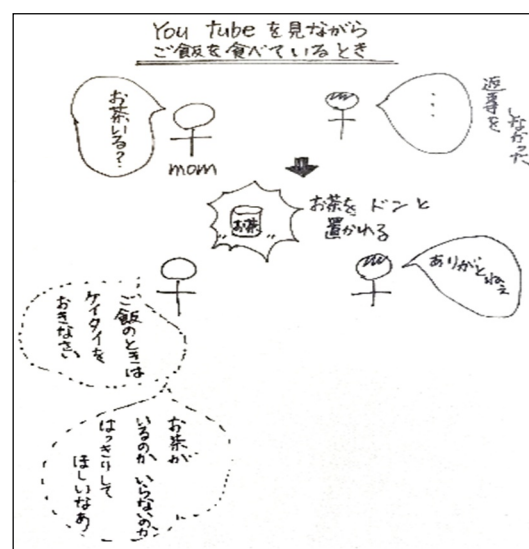 You tube を見ながら
ご飯を食べているとき
お茶いる?
mom
・・・
返事を
しなかった
お茶
お茶をドンと
置かれる
ありがとねぇ
ご飯のときは
ケイタイを
おきなさい
お茶が
いるのか いらないのか
はっきりして
ほしいなあ